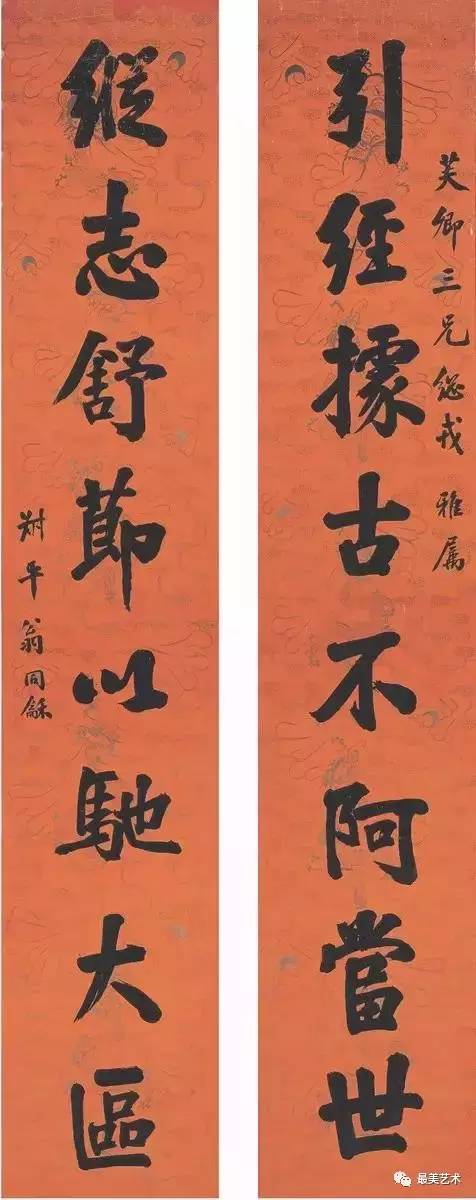 芙卿三兄總戎雅属
引經據古不阿當世
縱志舒節以馳大區
叔平翁同龢
最美艺术